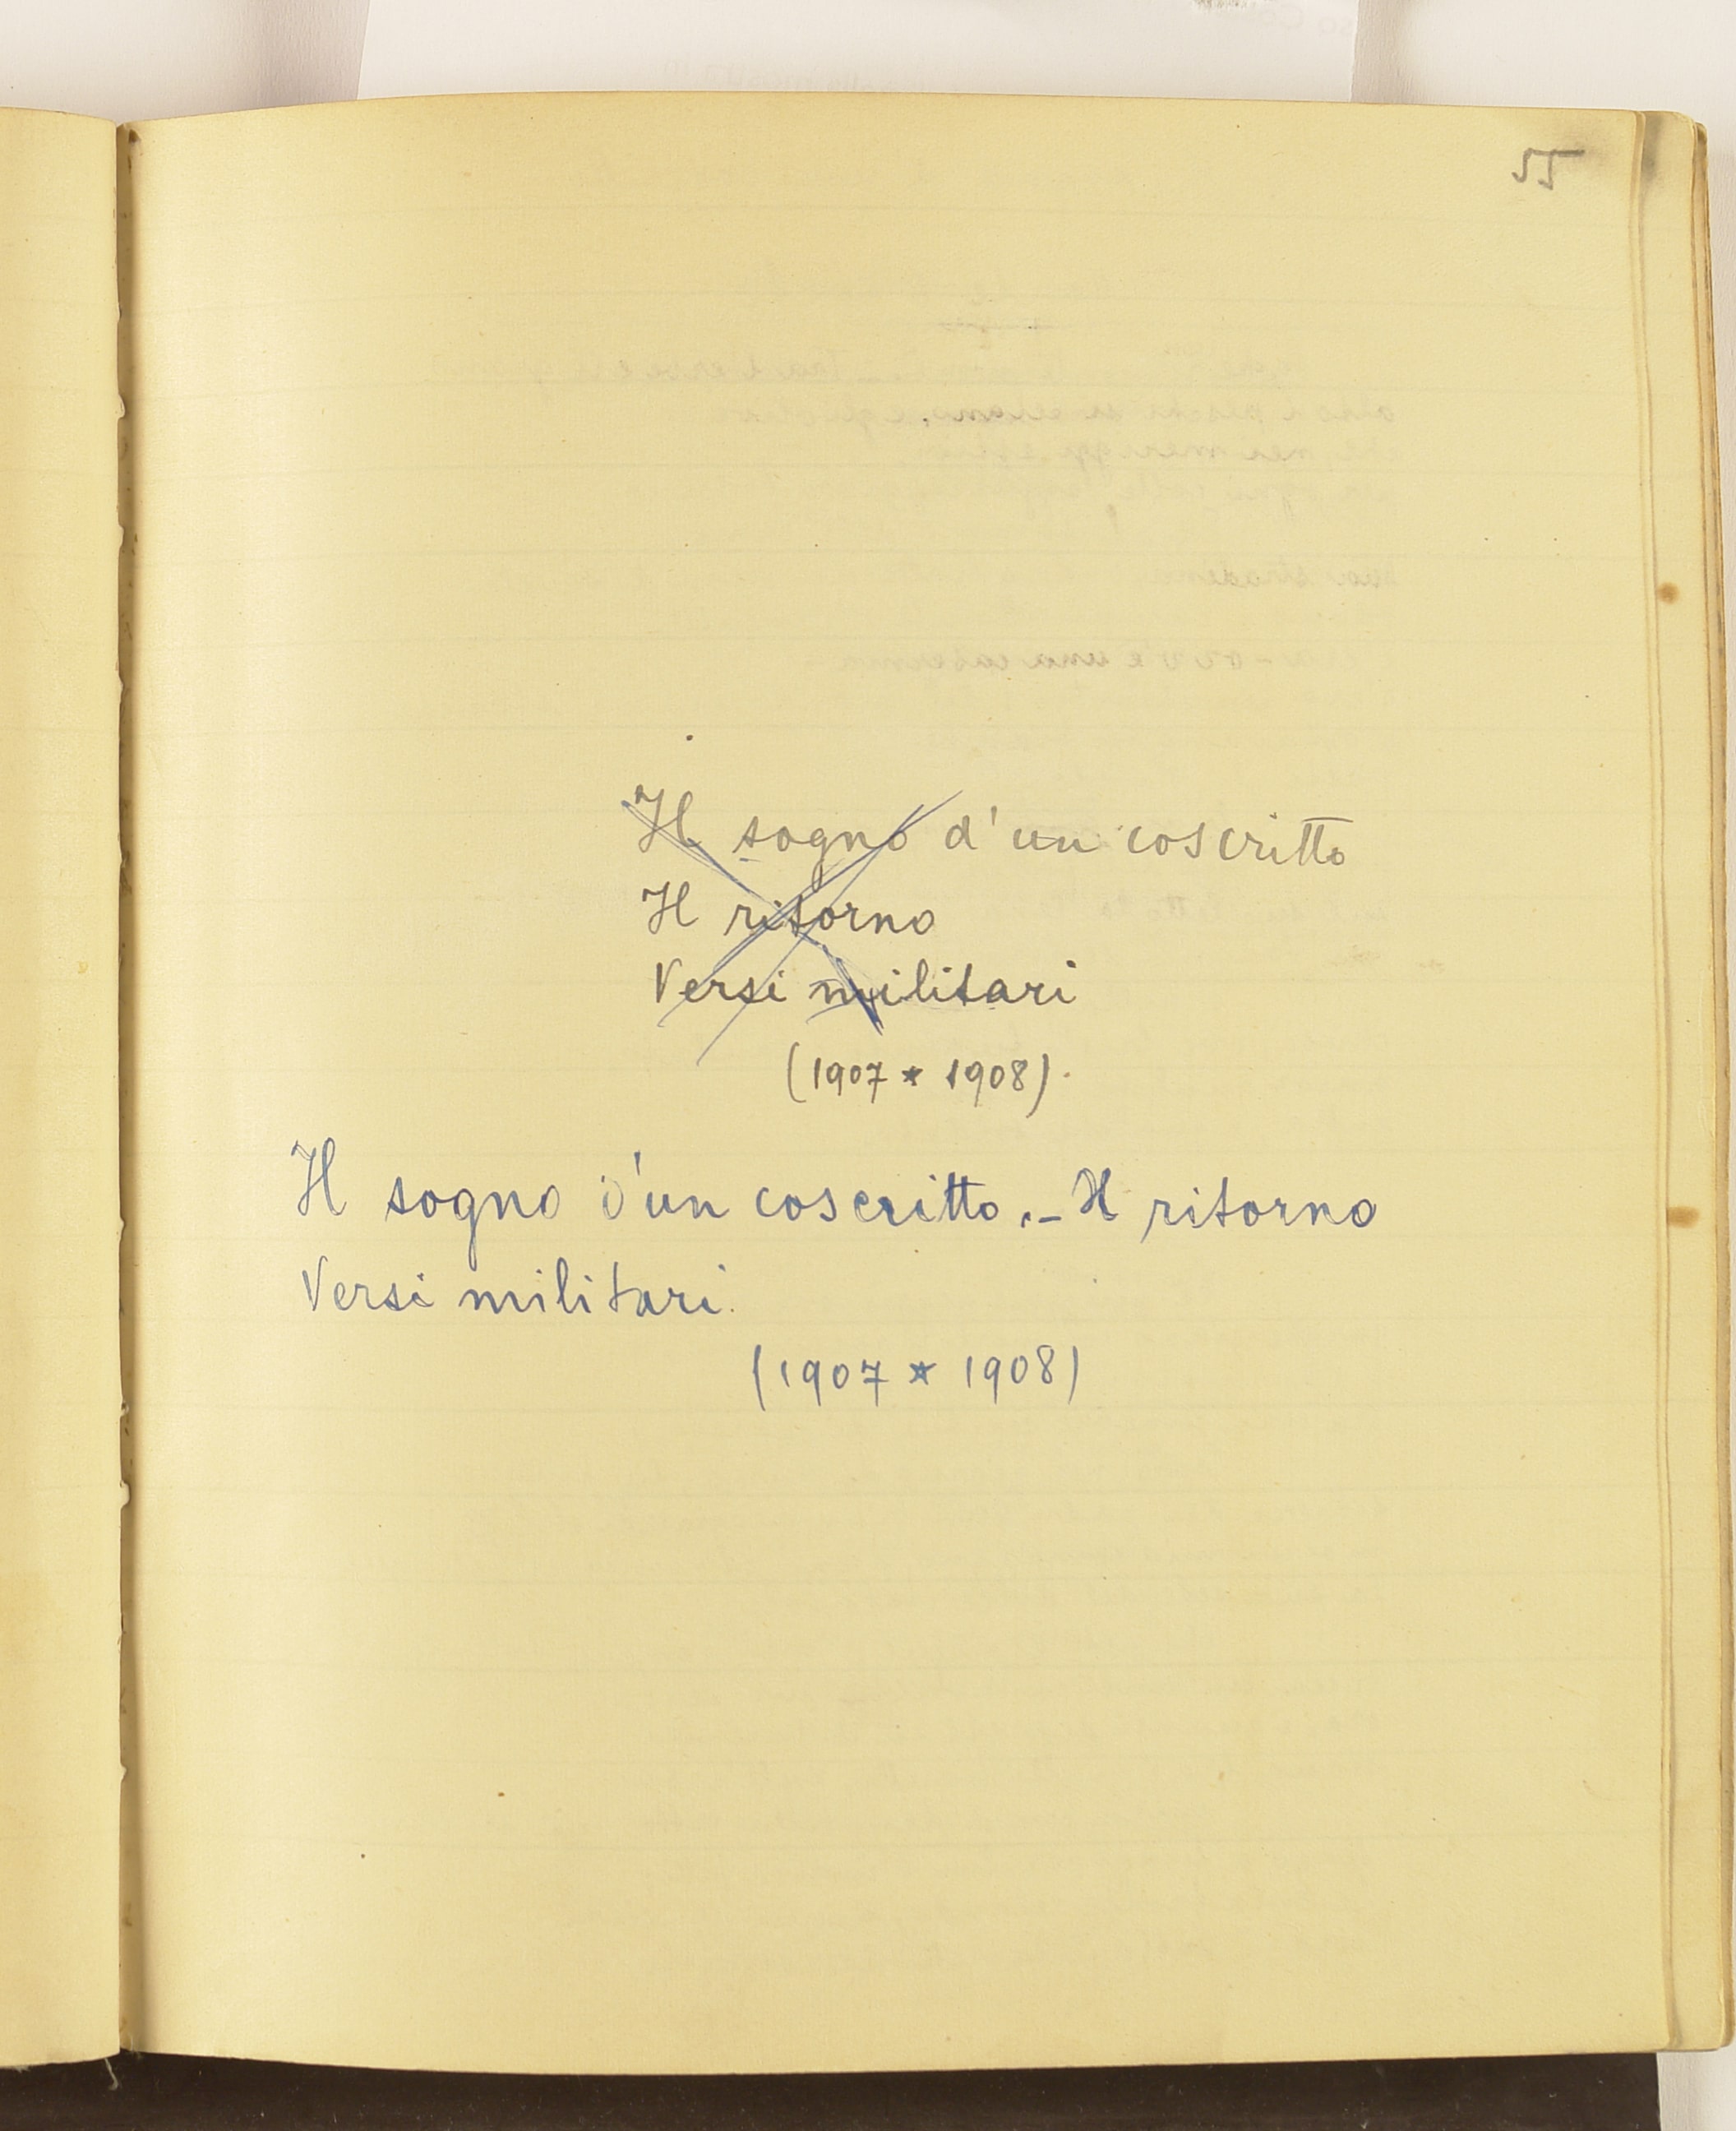 Il sogno d'un coscritto
Il ritorno
Versi militari
(1907 * 1908).
Il sogno d'un coscritto.- Il ritorno
Versi militari.
(1907 * 1908)